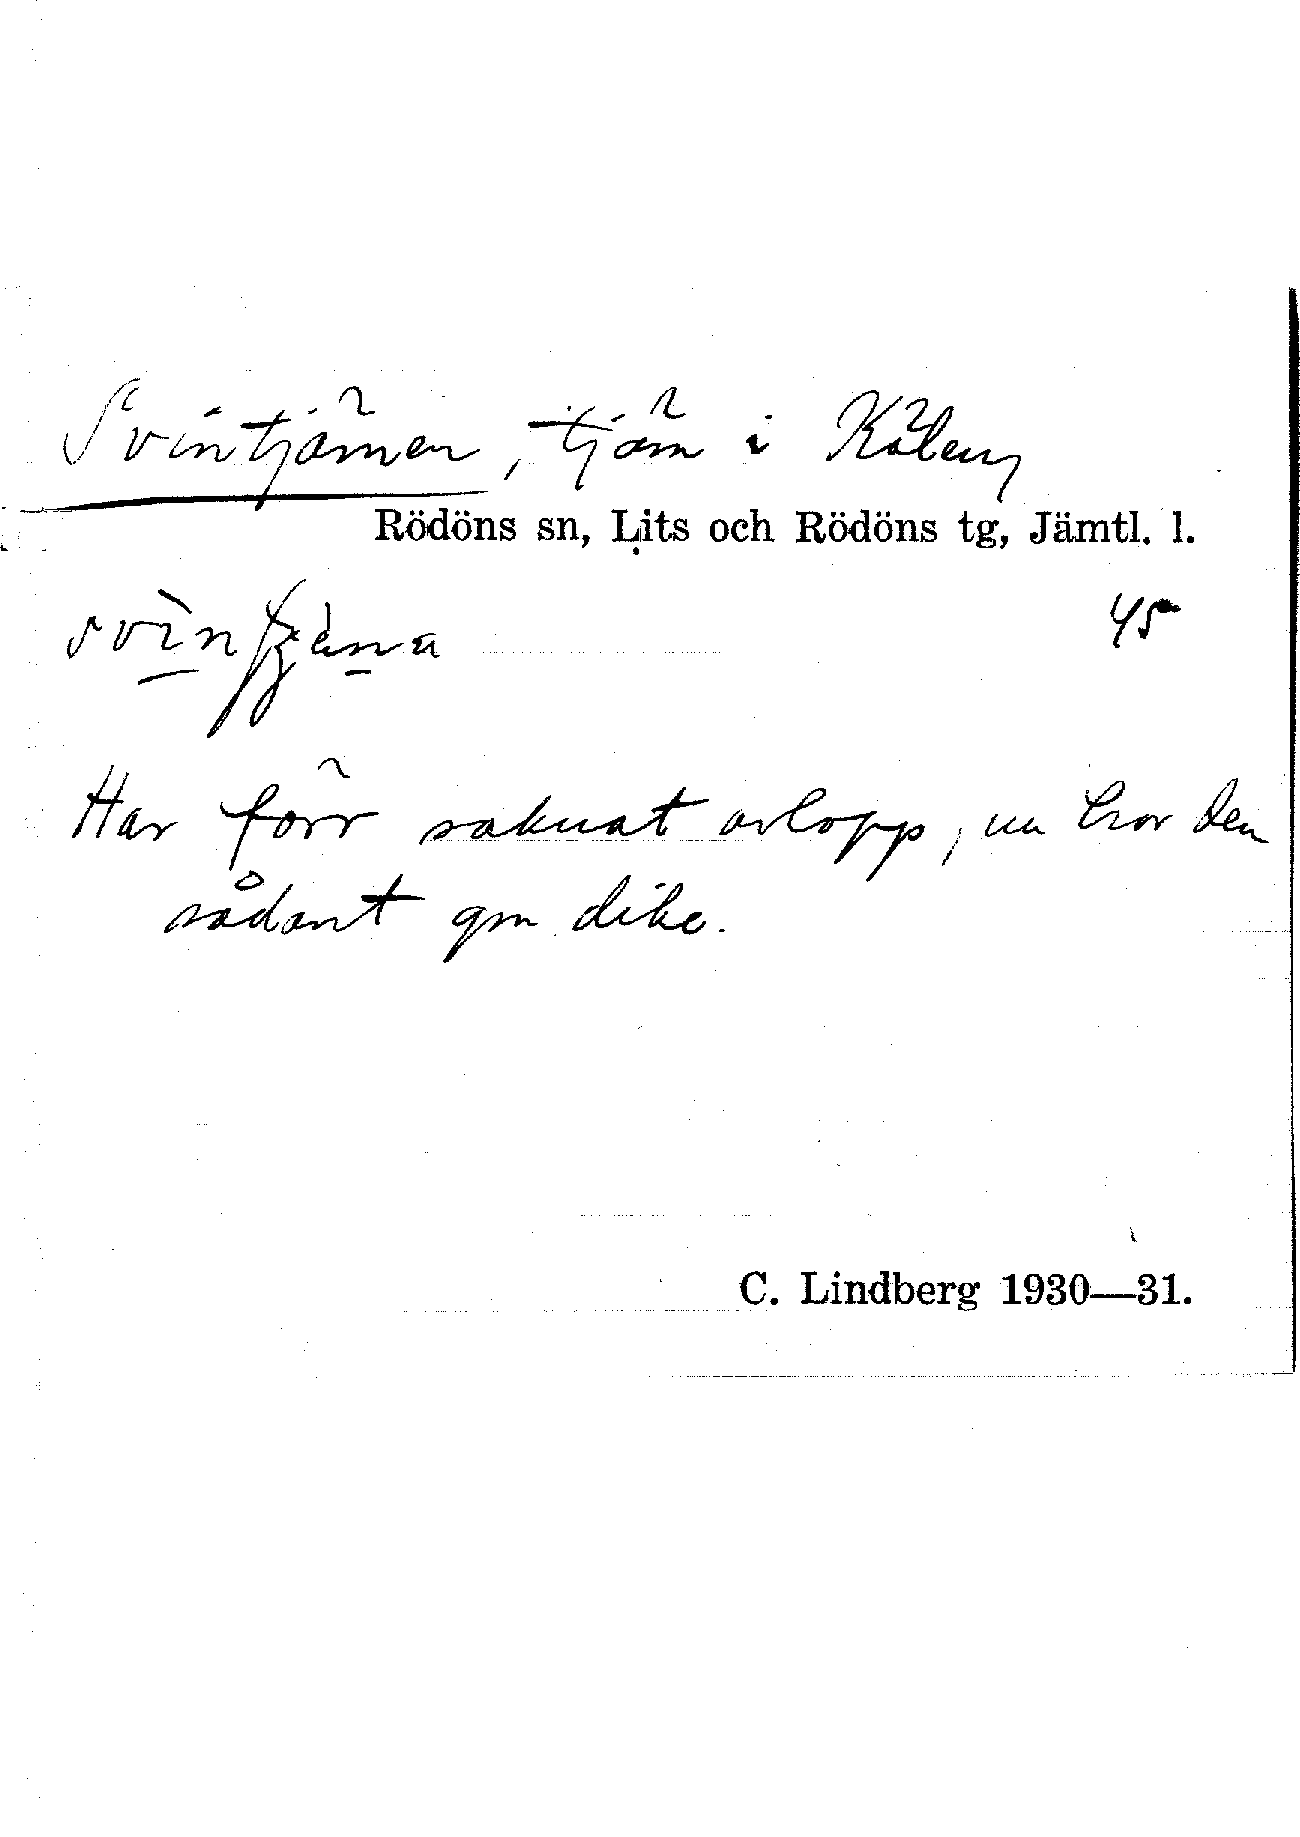 Svintjärnen, tjärn i Kälen,
Rödöns sn, Lits och Rödöns tg, Jämtl. l.
45
Har förr saknat avlopp, nu har den
sådant gm dike.
C. Lindberg 1930—31.